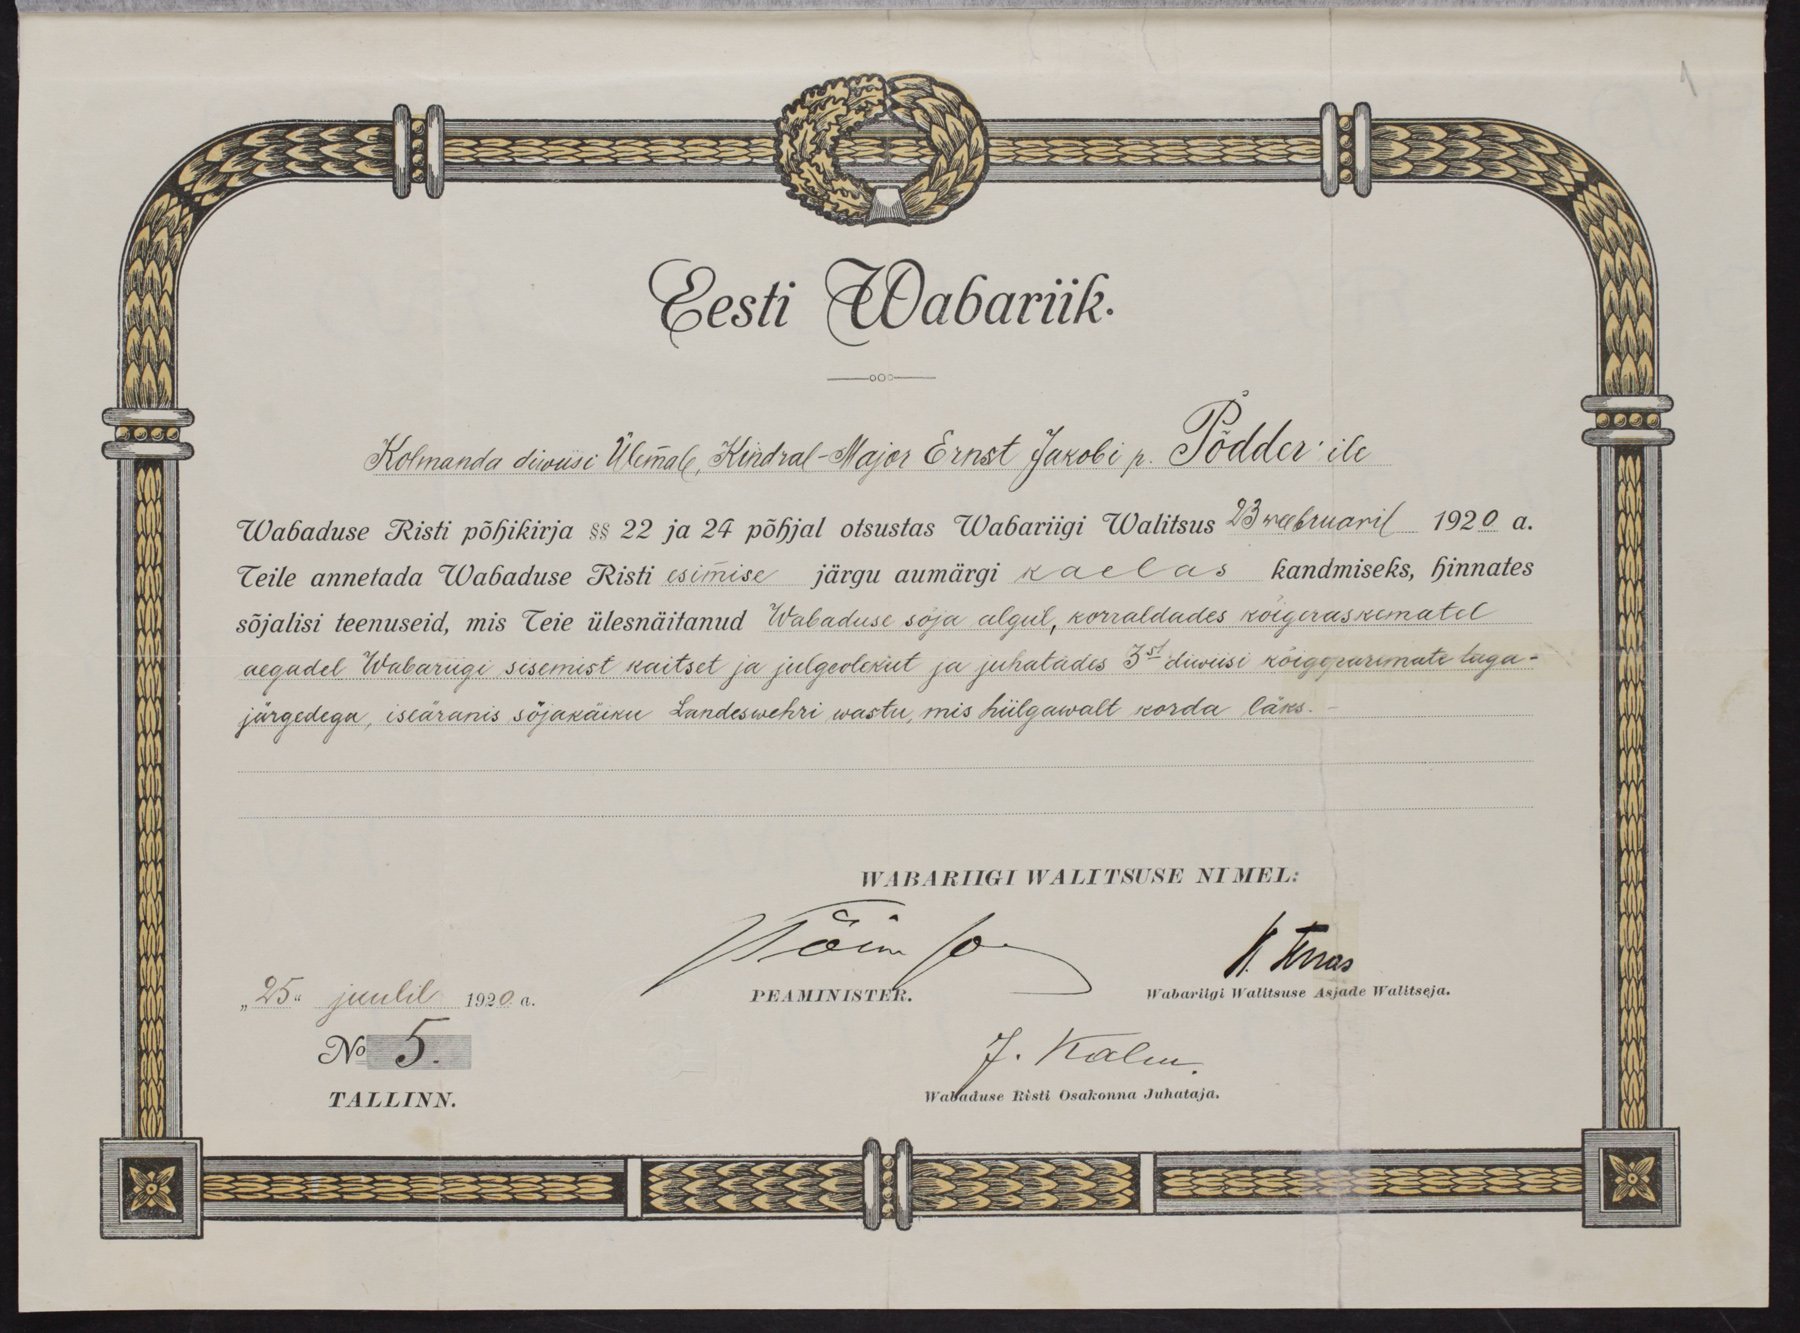 1
Eesti Wabariik.
Kolmanda diwiisi Ülem̄ale, Kindral-Major Ernst Jakobi p. Põdder'ile
Wabaduse Risti põhikirja §§ 22 ja 24 põhjal otsustas Wabariigi Walitsus 23 weebruaril 1920 a.
Teile annetada Wabaduse Risti esim̄ise järgu aumärgi kaelas kandmiseks, hinnates
sõjalisi teenuseid, mis Teie ülesnäitanud Wabaduse sõja algul, korraldades kõigeraskematel
aegadel Wabariigi sisemist kaitset ja julgeolekut ja juhatades 3st diwiisi kõigeparemate taga-
järgedega, iseäranis sõjakäiku Landeswehri wastu, mis hiilgawalt korda läks. -
WABARIIGI WALITSUSE NIMEL:
"25" juulil 1920 a.
PEAMINISTER.
Wabariigi Walitsuse Asjade Walitseja.
No 5.
J. Kalm.
TALLINN.
Wabaduse Risti Osakonna Juhataja.